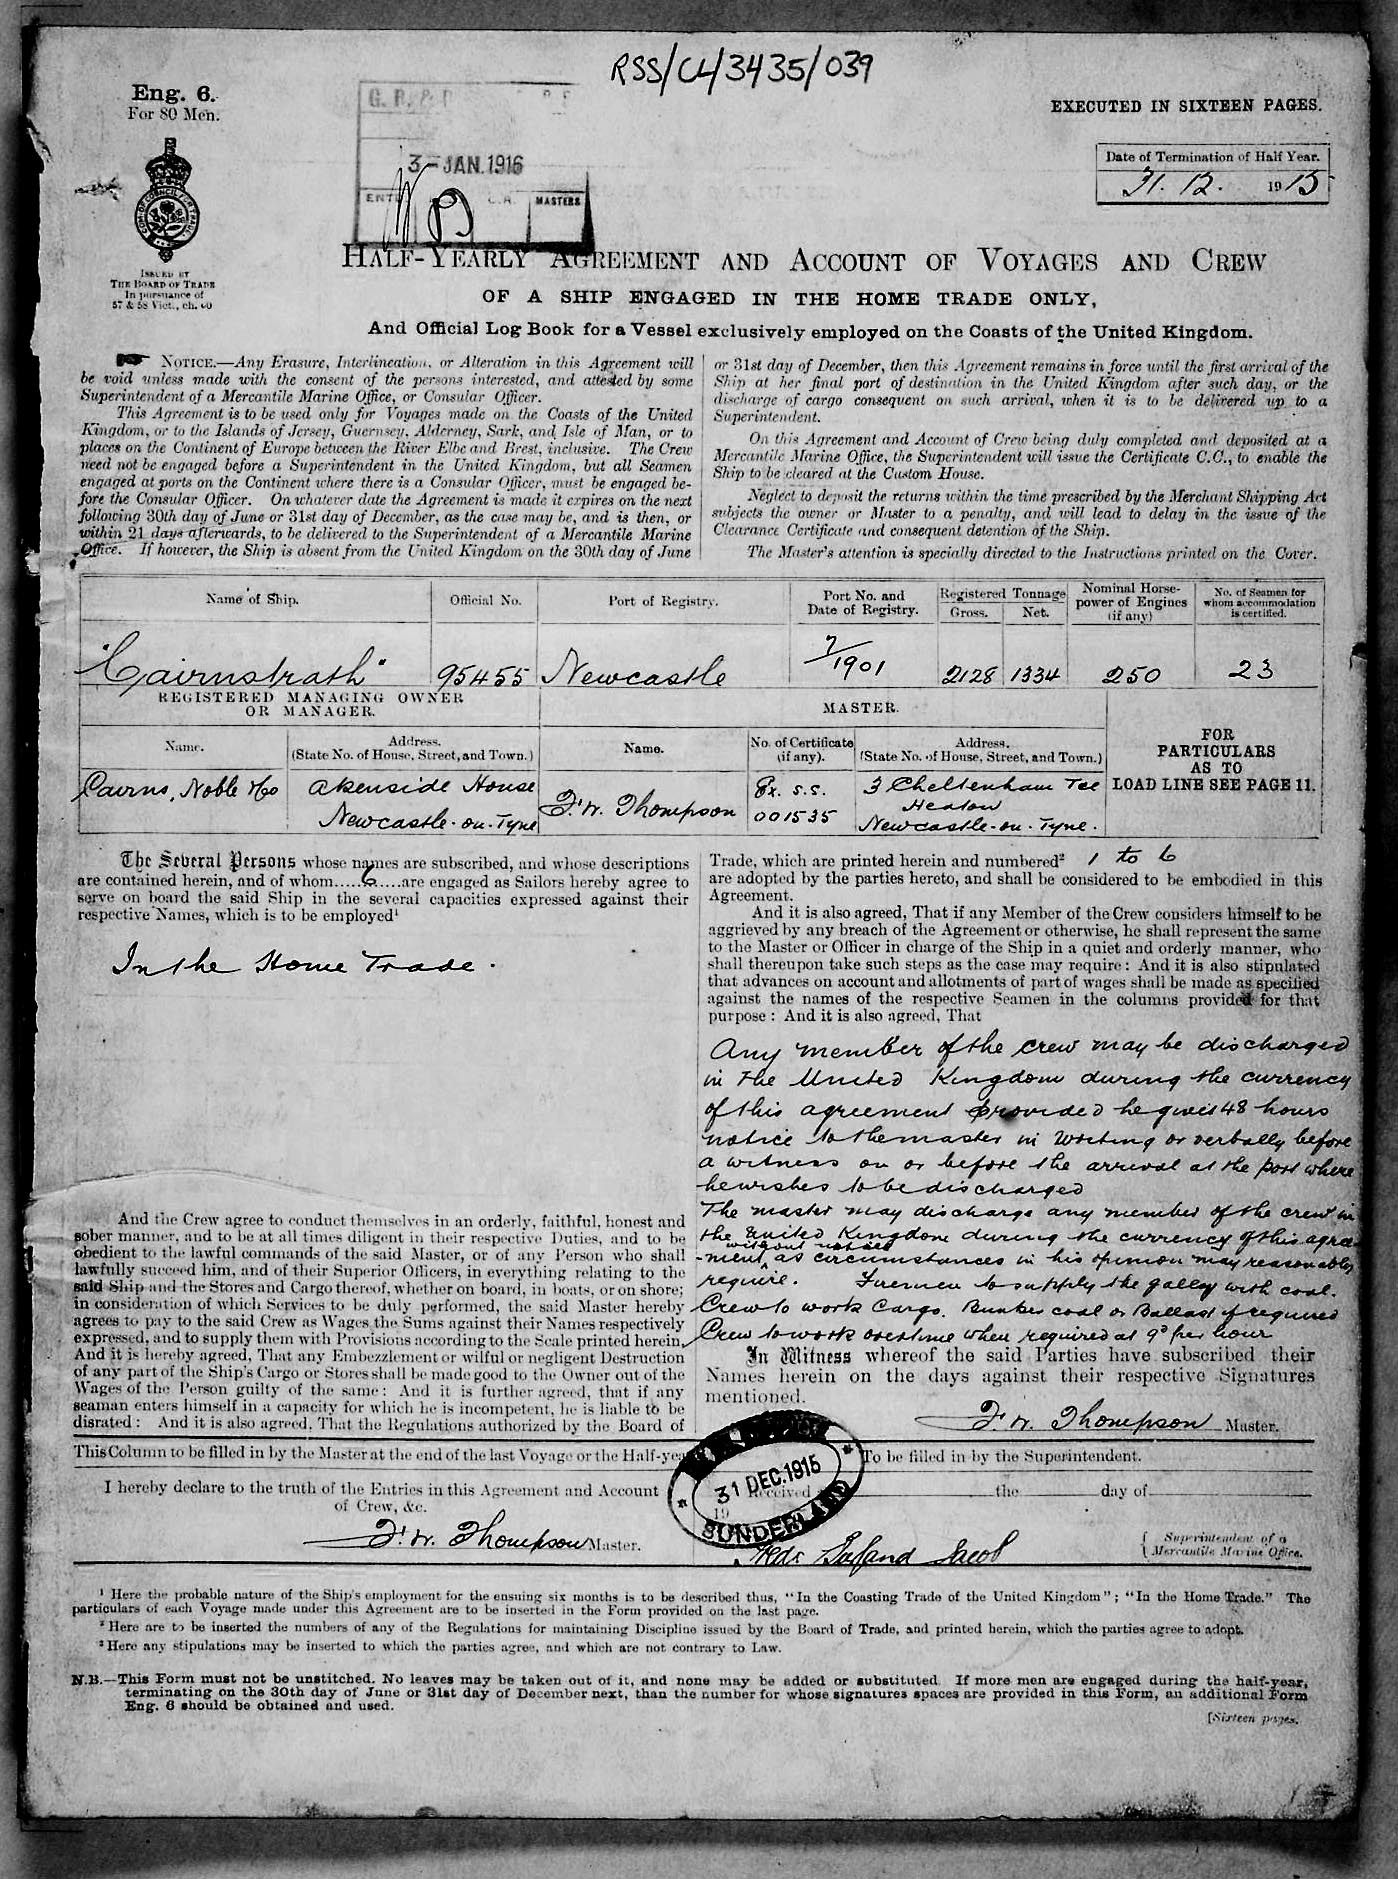 RSS/CL/3435/039
Eng. 6.
For 80 Men.
EXECUTED IN SIXTEEN PAGES.
Date of Termination of Half Year.
31. 12. 1915
3 - JAN. 1916
MASTERS
ISSUED BY
THE BOARD OF TRADE
In pursuance of
57 & 58 Vict., ch. 60
HALF-YEARLY AGREEMENT AND ACCOUNT OF VOYAGES AND CREW
OF A SHIP ENGAGED IN THE HOME TRADE ONLY,
And Official Log Book for a Vessel exclusively employed on the Coasts of the United Kingdom.
NOTICE.—Any Erasure, Interlineation, or Alteration in this Agreement will
be void unless made with the consent of the persons interested, and attested by some
Superintendent of a Mercantile Marine Office, or Consular Officer.
This Agreement is to be used only for Voyages made on the Coasts of the United
Kingdom, or to the Islands of Jersey, Guernsey, Alderney, Sark, and Isle of Man, or to
places on the Continent of Europe between the River Elbe and Brest, inclusive. The Crew
need not be engaged before a Superintendent in the United Kingdom, but all Seamen
engaged at ports on the Continent where there is a Consular Officer, must be engaged be-
fore the Consular Officer. On whatever date the Agreement is made it expires on the next
following 30th day of June or 31st day of December, as the case may be, and is then, or
within 21 days afterwards, to be delivered to the Superintendent of a Mercantile Marine
Office. If however, the Ship is absent from the United Kingdom on the 30th day of June
or 31st day of December, then this Agreement remains in force until the first arrival of the
Ship at her final port of destination in the United Kingdom after such day, or the
discharge of cargo consequent on such arrival, when it is to be delivered up to a
Superintendent.
On this Agreement and Account of Crew being duly completed and deposited at a
Mercantile Marine Office, the Superintendent will issue the Certificate C.C., to enable the
Ship to be cleared at the Custom House.
Neglect to deposit the returns within the time prescribed by the Merchant Shipping Act
subjects the owner or Master to a penalty, and will lead to delay in the issue of the
Clearance Certificate and consequent detention of the Ship.
The Master's attention is specially directed to the Instructions printed on the Cover.
Name of Ship. Official No. Port of Registry. Port No. and Date of Registry. Registered Tonnage Gross. Net. Nominal Horse-power of Engines (if any) No. of Seamen for whom accommodation is certified.
"Cairnstrath" 95455 Newcastle 7/1901 2128 1334 250 23
REGISTERED MANAGING OWNER
OR MANAGER.
MASTER.
Name. Address. (State No. of House, Street, and Town.) Name. No. of Certificate (if any). Address. (State No. of House, Street, and Town.)
FOR
PARTICULARS
AS TO
LOAD LINE SEE PAGE 11.
Cairns, Noble & Co Akenside House F. W. Thompson Ex. S.S. 3 Cheltenham Tce
Heaton
Newcastle-on-Tyne 001535 Newcastle-on-Tyne.
The Several Persons whose names are subscribed, and whose descriptions
are contained herein, and of whom.....6.....are engaged as Sailors hereby agree to
serve on board the said Ship in the several capacities expressed against their
respective Names, which is to be employed¹
In the Home Trade.
And the Crew agree to conduct themselves in an orderly, faithful, honest and
sober manner, and to be at all times diligent in their respective Duties, and to be
obedient to the lawful commands of the said Master, or of any Person who shall
lawfully succeed him, and of their Superior Officers, in everything relating to the
said Ship and the Stores and Cargo thereof, whether on board, in boats, or on shore;
in consideration of which Services to be duly performed, the said Master hereby
agrees to pay to the said Crew as Wages the Sums against their Names respectively
expressed, and to supply them with Provisions according to the Scale printed herein,
And it is hereby agreed, That any Embezzlement or wilful or negligent Destruction
of any part of the Ship's Cargo or Stores shall be made good to the Owner out of the
Wages of the Person guilty of the same: And it is further agreed, that if any
seaman enters himself in a capacity for which he is incompetent, he is liable to be
disrated: And it is also agreed, That the Regulations authorized by the Board of
Trade, which are printed herein and numbered² 1 to 6
are adopted by the parties hereto, and shall be considered to be embodied in this
Agreement.
And it is also agreed, That if any Member of the Crew considers himself to be
aggrieved by any breach of the Agreement or otherwise, he shall represent the same
to the Master or Officer in charge of the Ship in a quiet and orderly manner, who
shall thereupon take such steps as the case may require: And it is also stipulated
that advances on account and allotments of part of wages shall be made as specified
against the names of the respective Seamen in the columns provided for that
purpose: And it is also agreed, That
Any member of the crew may be discharged
in the United Kingdom during the currency
of this agreement provided he gives 48 hours
notice to the master in writing or verbally before
a witness on or before the arrival at the port where
he wishes to be discharged
The master may discharge any member of the crew in
the United Kingdom during the currency of this agree
without notice
-ment as circumstances in his opinion may reasonably
require. Firemen to supply the galley with coal.
Crew to work Cargo. Bunker coal or Ballast if required
Crew to work overtime when required at 9d per hour
In Witness whereof the said Parties have subscribed their
Names herein on the days against their respective Signatures
mentioned.
F. W. Thompson Master.
This Column to be filled in by the Master at the end of the last Voyage or the Half-year
To be filled in by the Superintendent.
I hereby declare to the truth of the Entries in this Agreement and Account
of Crew, &c.
F. W. Thompson Master.
Received the day of
19
31 DEC. 1915
SUNDERLAND
Superintendent of a
Mercantile Marine Office.
¹ Here the probable nature of the Ship's employment for the ensuing six months is to be described thus, "In the Coasting Trade of the United Kingdom"; "In the Home Trade." The
particulars of each Voyage made under this Agreement are to be inserted in the Form provided on the last page.
² Here are to be inserted the numbers of any of the Regulations for maintaining Discipline issued by the Board of Trade, and printed herein, which the parties agree to adopt.
³ Here any stipulations may be inserted to which the parties agree, and which are not contrary to Law.
N.B.—This Form must not be unstitched. No leaves may be taken out of it, and none may be added or substituted. If more men are engaged during the half-year,
terminating on the 30th day of June or 31st day of December next, than the number for whose signatures spaces are provided in this Form, an additional Form
Eng. 6 should be obtained and used.
[Sixteen pages.